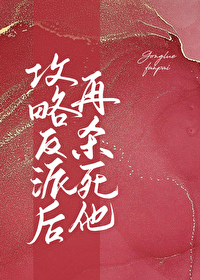 攻略反派后
再杀死他
Gonglue
fanpai